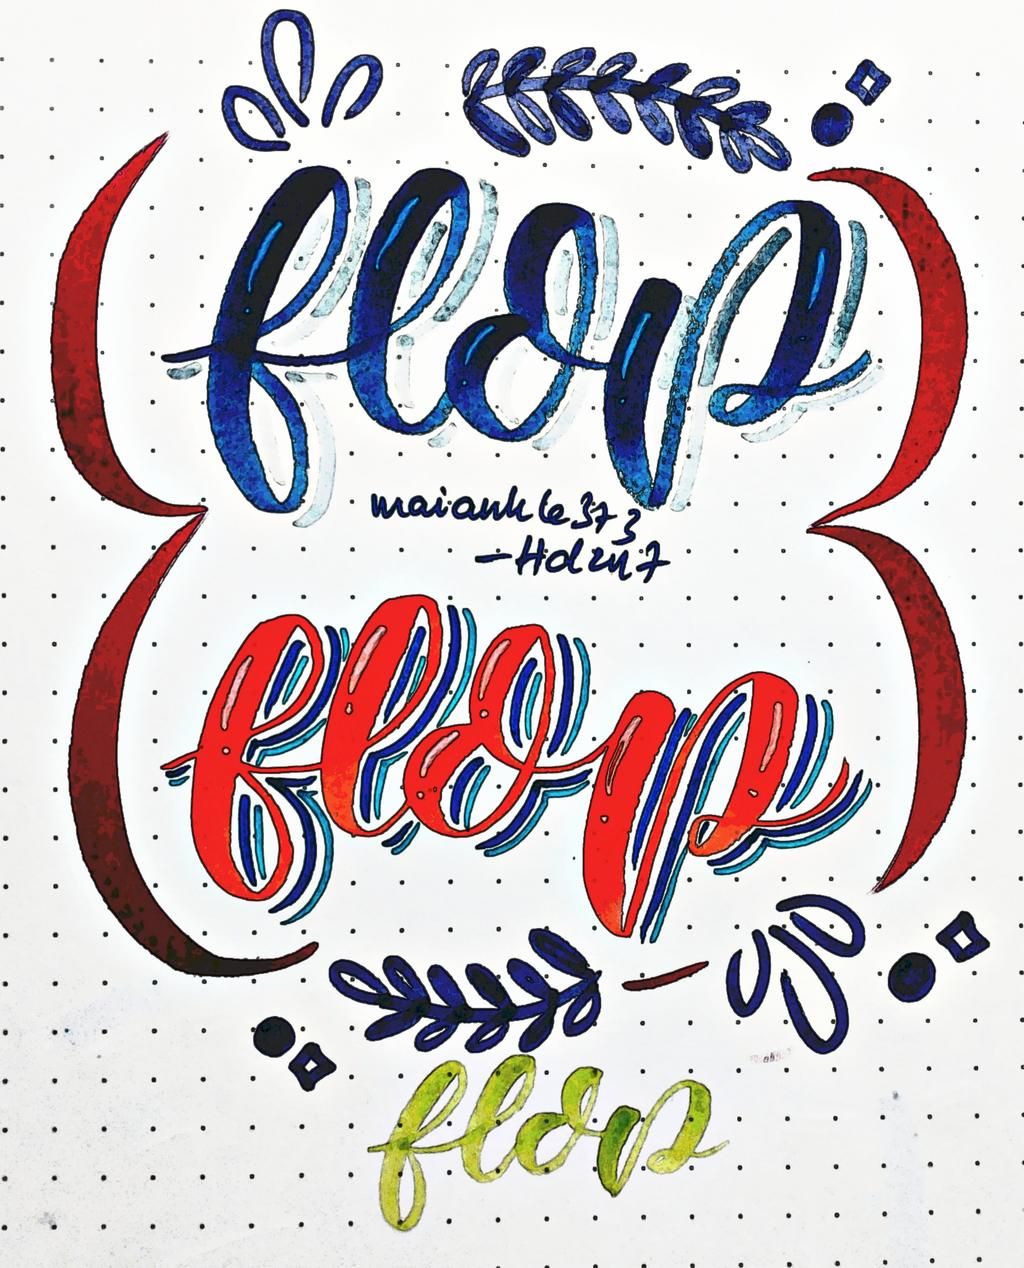 flop
maianhle373
-Hd2417
flop
flop